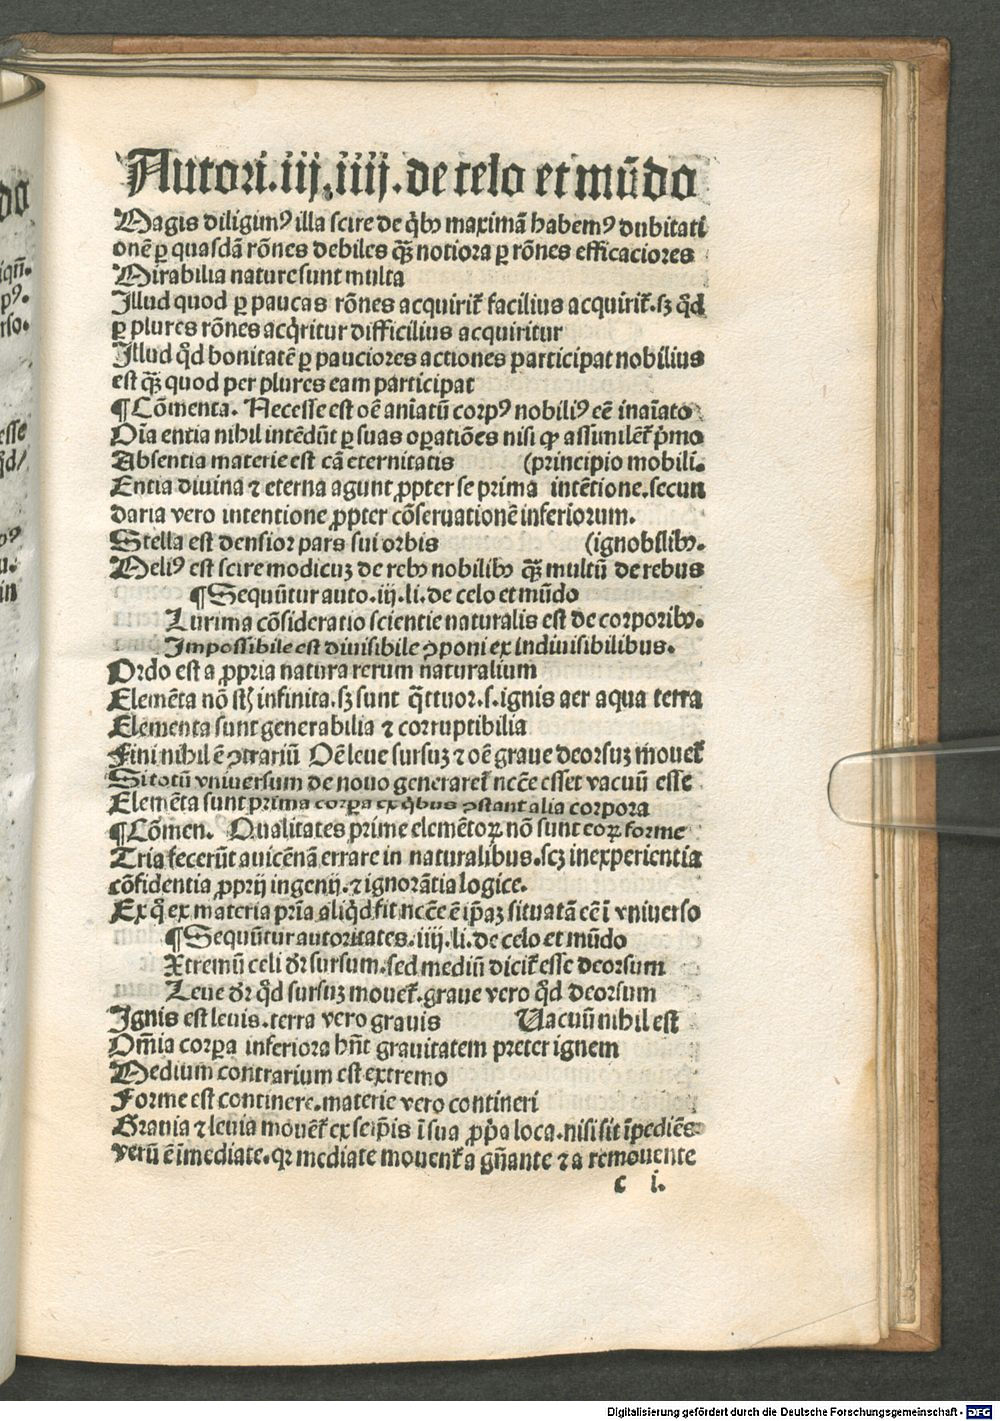 Autori.iij.iiij.de celo et mūdo
Magis diligimꝰ illa scire de qͥbꝫ maximā habemꝰ dubitati
onē ꝑ quasdā rōnes debiles qͣꝫ notiora ꝑ rōnes efficaciores
Mirabilia nature sunt multa
Illud quod ꝑ paucas rōnes acquirit᷑ facilius acquirit᷑.sꝫ qd̓
ꝑ plures rōnes acqͥritur difficilius acquiritur
Illud qd̓ bonitatē ꝑ pauciores actiones participat nobilius
est qͣꝫ quod per plures eam participat
¶Cōmenta. Necesse est oē aīatū corpꝰ nobiliꝰ eē inaīato
Oīa entia nihil intēdūt ꝑ suas oꝑatiōes nisi ꝙ assimilēt᷑ pͥmo
Absentia materie est cā eternitatis (principio mobili.
Entia diuina ⁊ eterna agunt ꝓpter se prima intētione.secun
daria vero intentione ꝓpter cōseruationē inferiorum.
Stella est densior pars sui orbis (ignobilibꝫ.
Meliꝰ est scire modicuꝫ de rebꝫ nobilibꝫ qͣꝫ multū de rebus
¶Sequūtur auto.iij.li.de celo et mūdo
Lurima cōsideratio scientie naturalis est de corporibꝫ.
Impossibile est diuisibile ꝯponi ex indiuisibilibus.
Ordo est a ꝓpria natura rerum naturalium
Elemēta nō st̄ infinita.sꝫ sunt qͣttuor.s.ignis aer aqua terra
Elementa sunt generabilia ⁊ corruptibilia
Fini nihil ē ꝯtrariū Oē leue sursuꝫ ⁊ oē graue deorsuꝫ mouet᷑
Si totū vniuersum de nouo generaret᷑ nc̄cē esset vacuū esse
Elemēta sunt prima corꝑa ex qͥbus ꝯstant alia corpora
¶Cōmen. Qualitates prime elemētoꝝ nō sunt eoꝝ forme
Tria fecerūt auicēnā errare in naturalibus.scꝫ inexperientia
cōfidentia ꝓprij ingenij.⁊ ignorātia logice.
Ex qͦ ex materia pͥma aliqͥd fit nc̄cē ē ip̄aꝫ situatā eē ī vniuerso
¶Sequūtur autoritates.iiij.li.de celo et mūdo
Xtremū celi dr̄ sursum.sed mediū dicit᷑ esse deorsum
Leue dr̄ qd̓ sursuꝫ mouet᷑.graue vero qd̓ deorsum
Ignis est leuis.terra vero grauis Uacuū nihil est
Om̄ia corꝑa inferiora hn̄t grauitatem preter ignem
Medium contrarium est extremo
Forme est continere.materie vero contineri
Grauia ⁊ leuia mouēt᷑ ex seip̄is ī sua ꝓpͥa loca.nisi sit īpediēs
verū ē īmediate.qꝛ mediate mouent᷑ a gn̄ante ⁊ a remouente
c i.
Digitalisierung gefördert durch die Deutsche Forschungsgemeinschaft - DFG